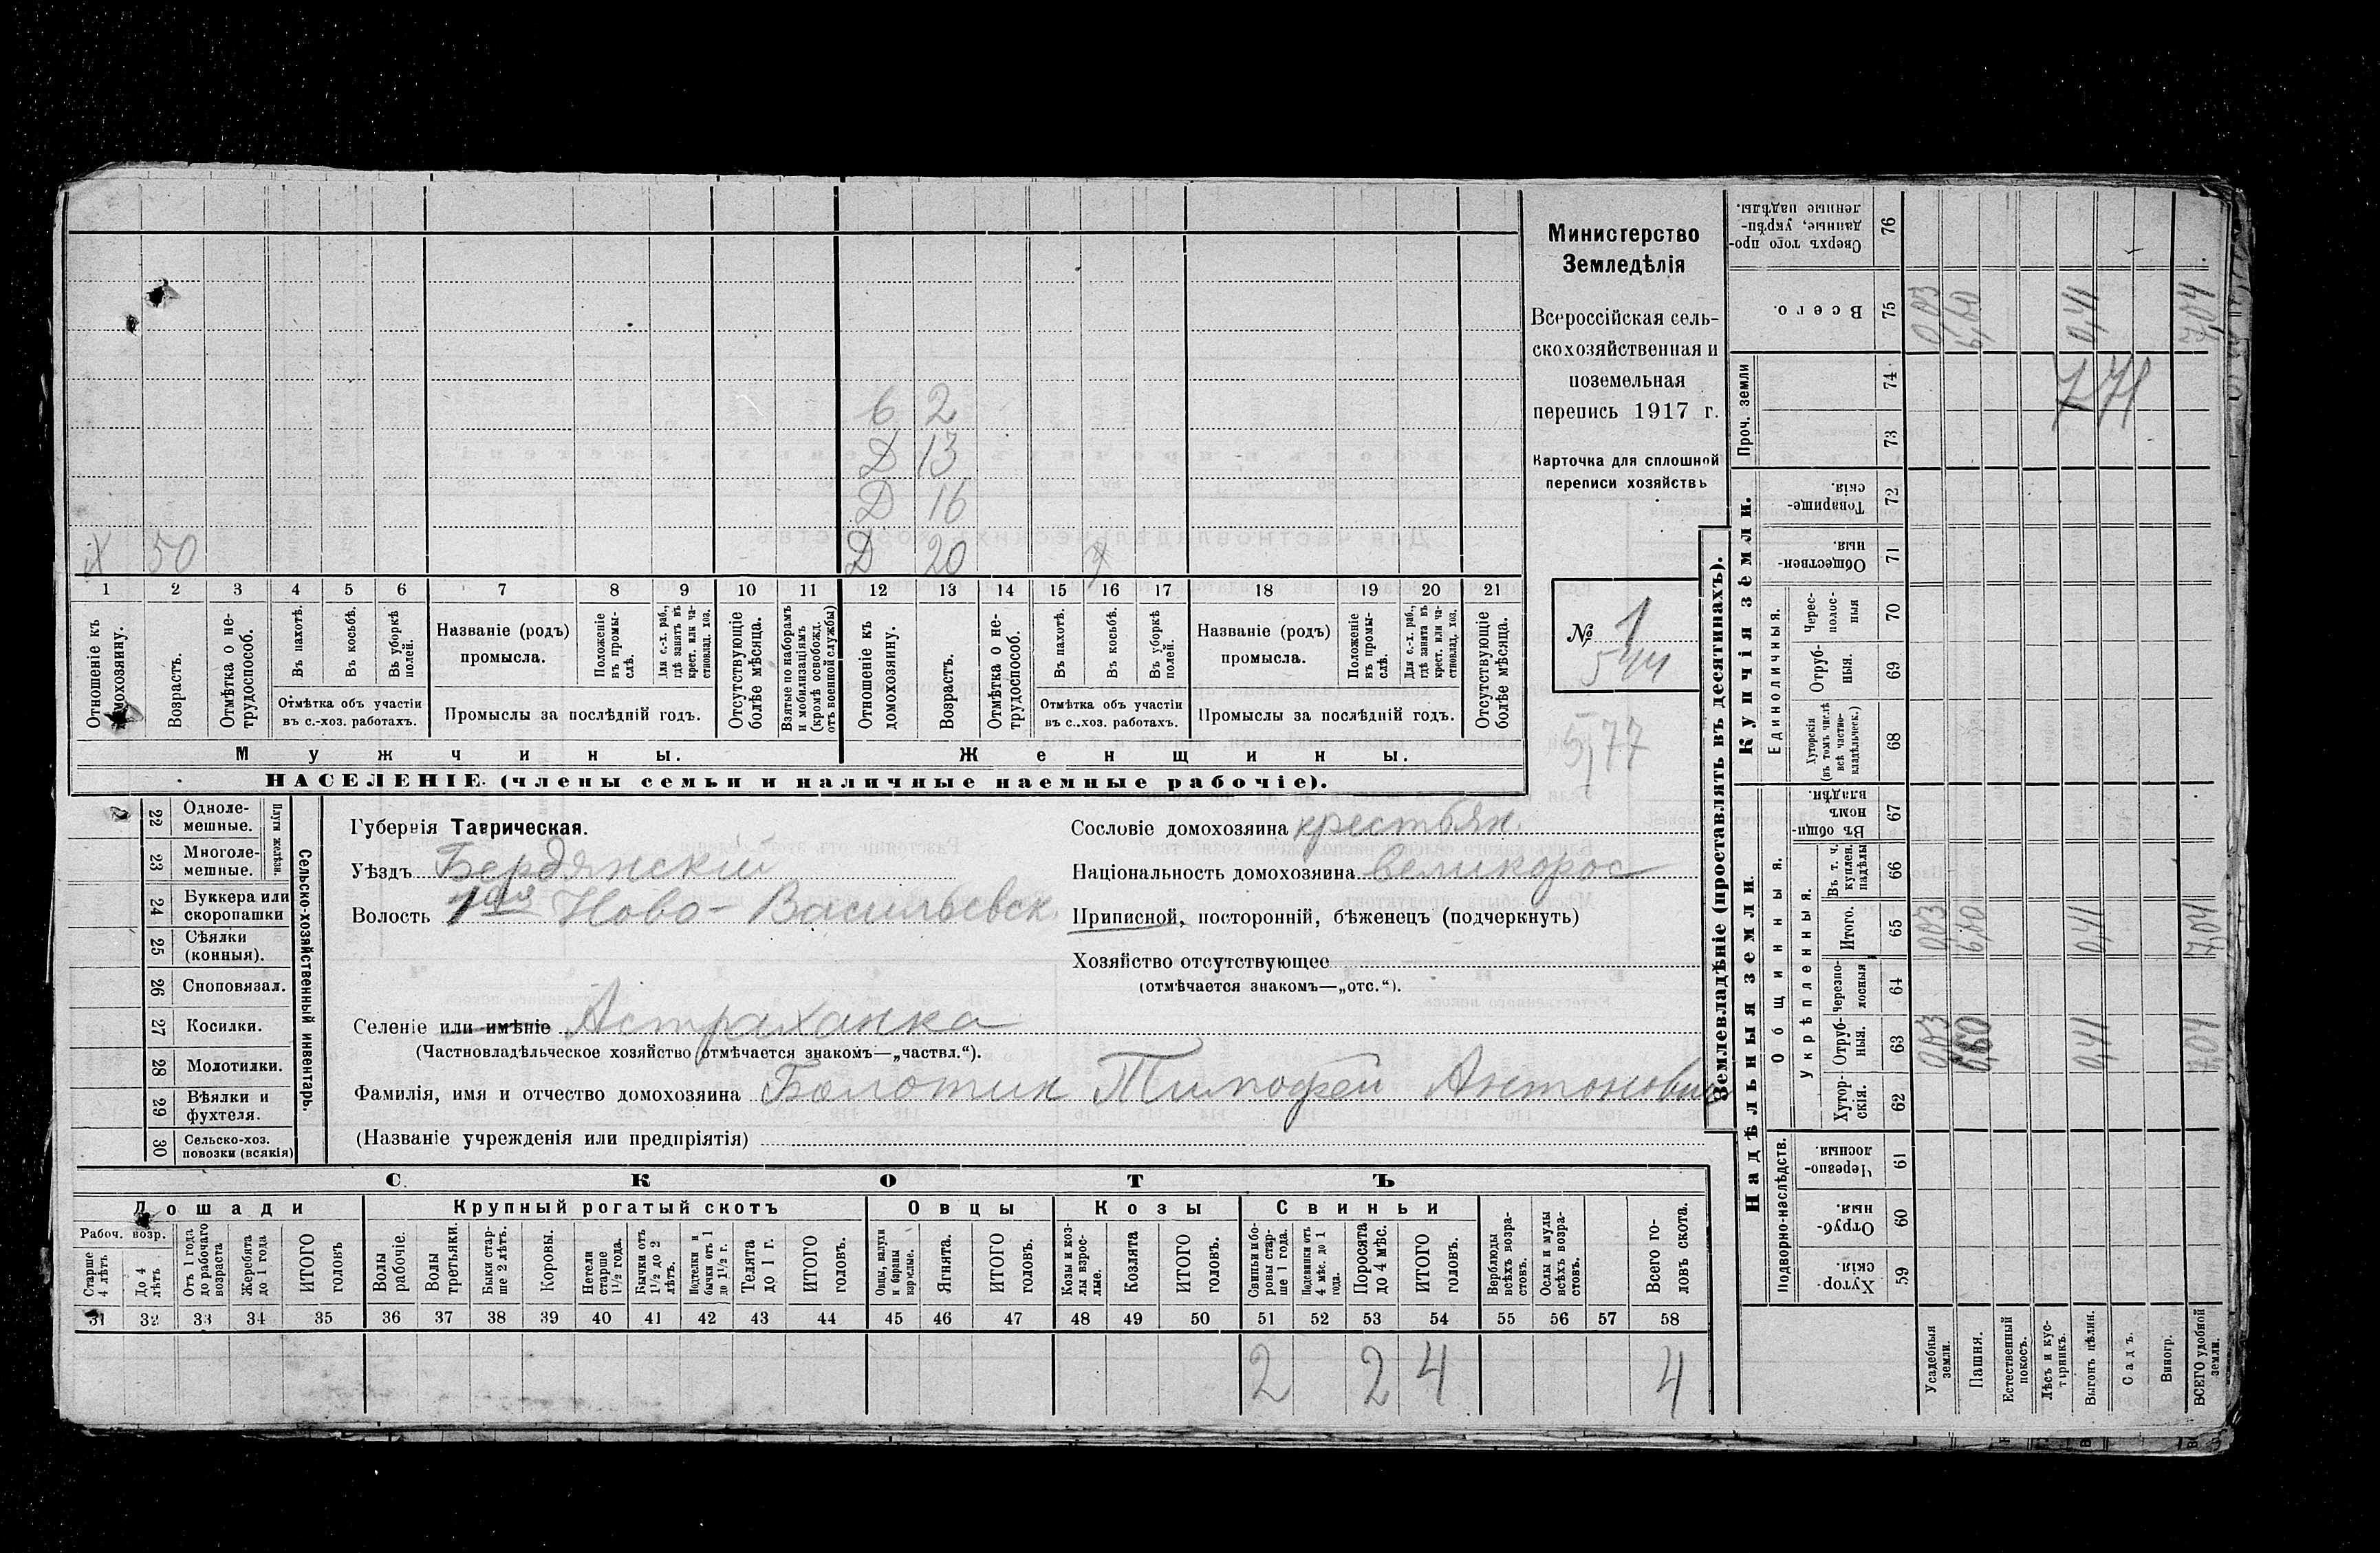 Министерство
Земледѣлія
Всероссійская сель-
скохозяйственная и
поземельная
перепись 1917 г.
Карточка для сплошной
переписи хозяйствъ
№ 1
544
577
6 2
Д 13
Д 16
Д 20
Х 50
1 2 3 4 5 6 7 8 9 10 11 12 13 14 15 16 17 18 19 20 21
Отношеніе къ домохозяину.
Возрастъ.
Отмѣтка о не-трудоспособ.
Въ пахотѣ.
Въ косьбѣ.
Въ уборкѣ полей.
Отмѣтка объ участіи
въ с.-хоз. работахъ.
Названіе (родъ)
промысла.
Положеніе въ промы-слѣ.
Для с.-х. раб., гдѣ занятъ въ крест. или ча-стновлад. хоз.
Промыслы за послѣдній годъ.
Отсутствующіе болѣе мѣсяца.
Взятые по наборамъ и мобилизаціямъ (кромѣ освобожд. отъ военной службы)
Отношеніе къ домохозяину.
Возрастъ.
Отмѣтка о не-трудоспособ.
Въ пахотѣ.
Въ косьбѣ.
Въ уборкѣ полей.
Отмѣтка объ участіи
въ с..хоз. работахъ.
Названіе (родъ)
промысла.
Положеніе въ промы-слѣ.
Для с.-х. раб., гдѣ занята въ крест. или ча-стновлад. хоз.
Промыслы за послѣдній годъ.
Отсутствующіе болѣе мѣсяца.
Мужчины.
Женщины.
НАСЕЛЕНІЕ (члены семьи и наличные наемные рабочіе).
22 Одноле-мешные.
23 Многоле-мешные.
Плуги желѣзн.
24 Буккера или скоропашки
25 Сѣялки (конныя).
26 Сноповязал.
27 Косилки.
28 Молотилки.
29 Вѣялки и фухтеля.
30 Сельско-хоз. повозки (всякія)
Сельско-хозяйственный инвентарь.
Губернія Таврическая.
Уѣздъ Бердянскій
Волость 1ая Ново-Васильевск.
Селеніе или имѣніе Астраханка
(Частновладѣльческое хозяйство отмѣчается знакомъ—„частвл.“).
Фамилія, имя и отчество домохозяина Болотин Тимофей Антонович
(Названіе учрежденія или предпріятія)
Сословіе домохозяина крестьян.
Національность домохозяина великорос
Приписной, посторонній, бѣженецъ (подчеркнуть)
Хозяйство отсутствующее
(отмѣчается знакомъ—„отс.“).
СКОТЪ
Лошади
Крупный рогатый скотъ
Овцы
Козы
Свиньи
Рабоч. возр.
Старше 4 лѣтъ
До 4 лѣтъ
Отъ 1 года до рабочаго возраста
Жеребята до 1 года
ИТОГО головъ
Волы рабочіе.
Волы третьяки.
Быки стар-ше 2 лѣтъ.
Коровы.
Нетели старше 1½ года.
Бычки отъ 1½ до 2 лѣтъ.
Подтелки и бычки отъ 1 до 1½ г.
Телята до 1 г.
ИТОГО головъ.
Овцы, валухи и бараны взрослые.
Ягнята.
ИТОГО головъ.
Козы и коз-лы взрос-лые.
Козлята
ИТОГО головъ.
Свиньи и бо-ровы стар-ше 1 года.
Подсвинки отъ 4 мѣс. до 1 года.
Поросята до 4 мѣс.
ИТОГО головъ.
Верблюды всѣхъ возра-стовъ.
Ослы и мулы всѣхъ возра-стовъ.
Всего го-ловъ скота.
31 32 33 34 35 36 37 38 39 40 41 42 43 44 45 46 47 48 49 50 51 52 53 54 55 56 57 58
2 2 4 4
Землевладѣніе (проставлять въ десятинахъ).
Надѣльныя земли
Купчія земли.
Проч. земли
Подворно-наслѣдств.
Общинныя.
Укрѣпленныя.
Единоличныя.
Хутор-скія. 59
Отруб-ныя. 60
Черезпо-лосныя. 61
Хутор-скія. 62
Отруб-ныя. 63
Черезпо-лосныя 64
Итого. 65
Въ т. ч. куплен. надѣлы 66
Въ общи-номъ владѣн. 67
Хуторскія (въ томъ числѣ всѣ частно-владѣльческ.) 68
Отруб-ныя. 69
Черес-полос-ныя 70
Обществен-ныя. 71
Товарище-скія. 72
73
74
Всего. 75
Сверхъ того про-данные, укрѣп-ленные надѣлы. 76
Усадебныя земли.
Пашня.
Естественный покосъ.
Лѣсъ и кус-тарникъ.
Выгонъ цѣлин.
Садъ.
Виногр.
ВСЕГО удобной земли.
0,03 6,60 0,41 7,04
0,03 6,60 0,41 7,04
0,03 6,60 0,41 7,04